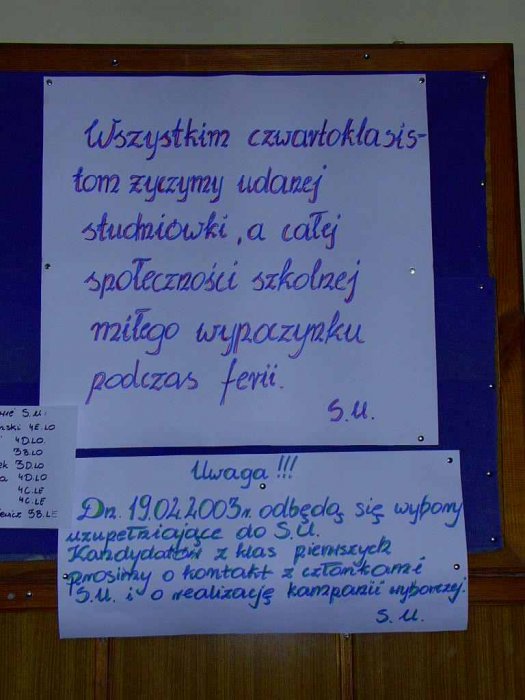 Wszystkim czwartoklasis-
tom życzymy udanej
studniówki, a całej
społeczności szkolnej
miłego wypoczynku
podczas ferii.
S.U.
S.U.:
4E.LO
4D.LO.
3B.LO
3D.LO
4D.LO
4C.LE
4C.LE
3B.LE
Uwaga !!!
Dn. 19.02.2003r. odbędą się wybory
uzupełniające do S.U.
Kandydatów z klas pierwszych
prosimy o kontakt z członkami
S.U. i o realizację kampanii wyborczej.
S.U.